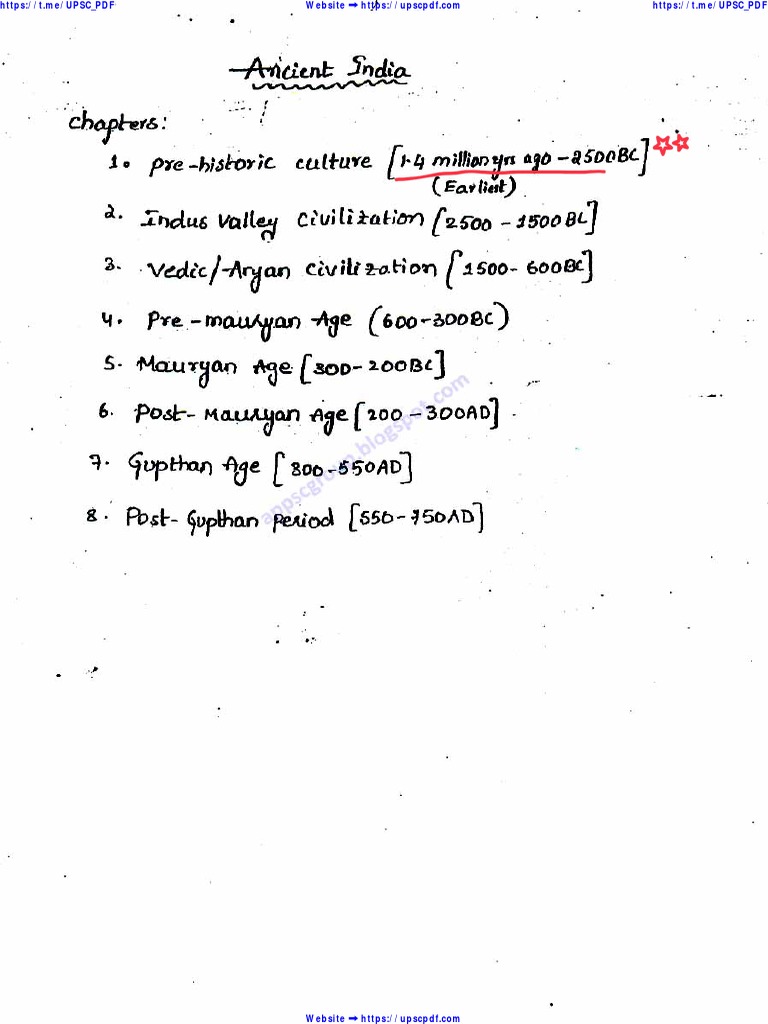 https://t.me/UPSC_PDF Website ➞ https://upscpdf.com https://t.me/UPSC_PDF
Ancient India
chapters:
1. pre-historic culture [1.4 millionyrs ago - 2500BC]
(Earliest)
2. Indus valley civilization [2500 - 1500BC]
3. Vedic/Aryan civilization [1500- 600BC]
4. Pre-mauryan Age (600-300BC)
5. Mauryan Age [300-200BC]
6. Post-Mauryan Age [200 - 300AD]
7. Gupthan Age [300-550AD]
8. Post-Gupthan period [550-750AD]
appscgroup.blogspot.com
Website ➞ https://upscpdf.com